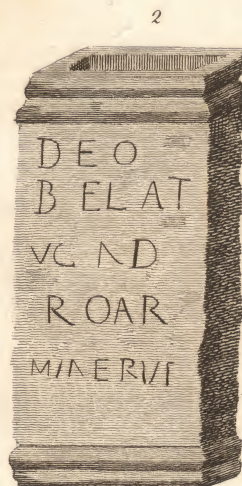 2
DEO
BELAT
VC AD
ROAR
MINERVS